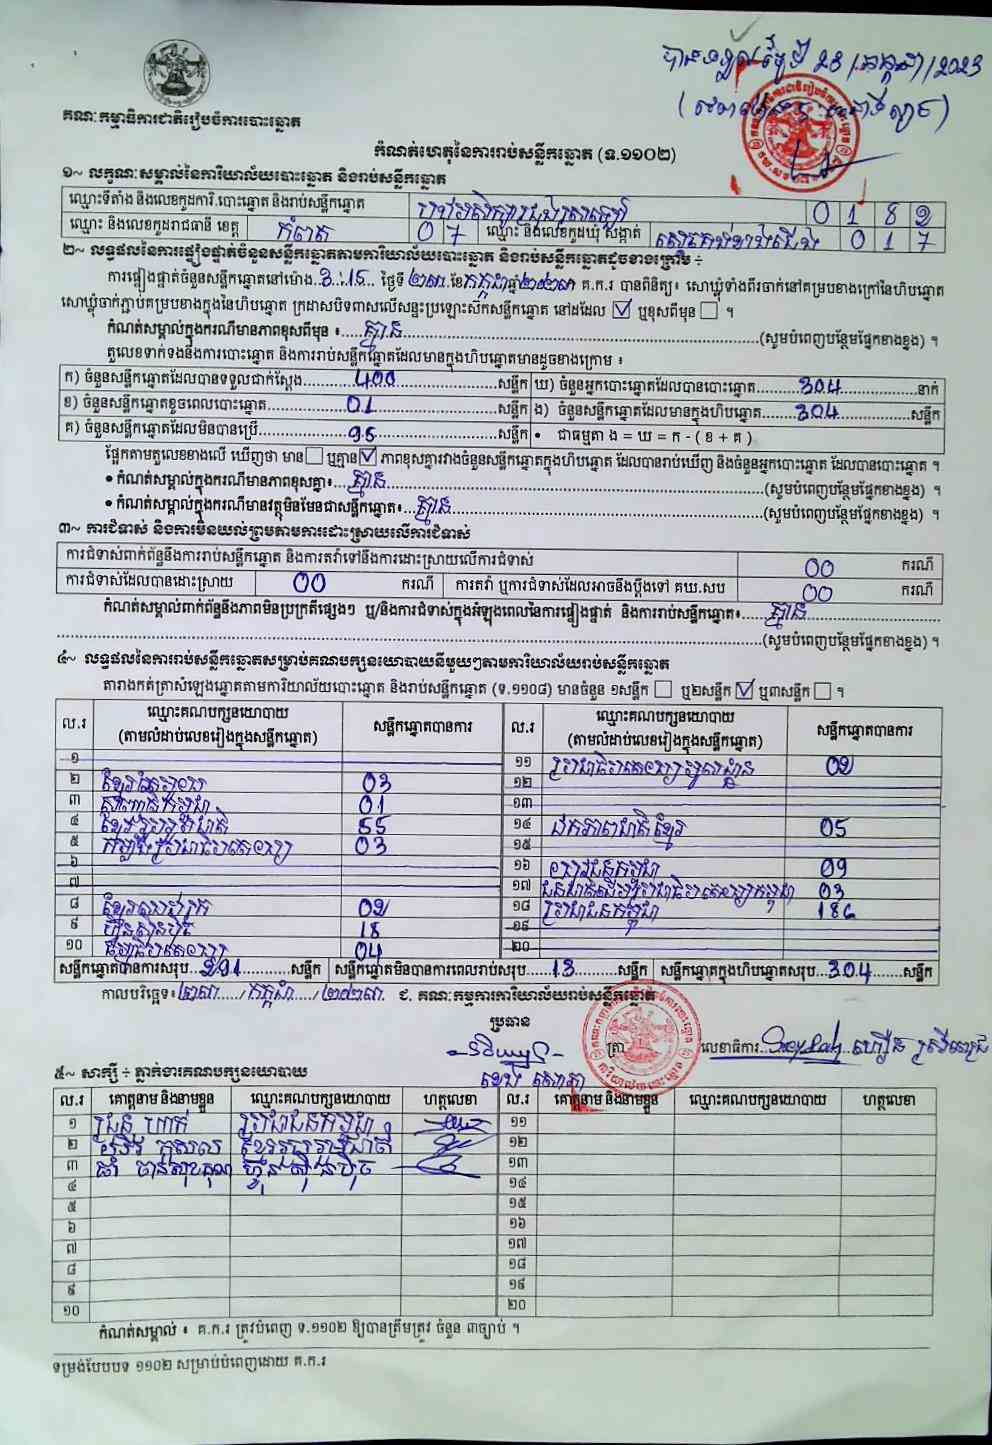 បានទទួលថ្ងៃទី 23 /កក្កដា/2023
គណៈកម្មាធិការជាតិរៀបចំការបោះឆ្នោត
កំណត់ហេតុនៃការរាប់សន្លឹកឆ្នោត (ទ.១១០២)
១~ លក្ខណៈសម្គាល់នៃការិយាល័យបោះឆ្នោត និងរាប់សន្លឹកឆ្នោត
ឈ្មោះទីតាំង និងលេខកូដការិ.បោះឆ្នោត និងរាប់សន្លឹកឆ្នោត 0 1 8 2
ឈ្មោះ និងលេខកូដរាជធានី ខេត្ត កំពត 0 7 ឈ្មោះ និងលេខកូដឃុំ សង្កាត់ 0 1 7
២~ លទ្ធផលនៃការផ្ទៀងផ្ទាត់ចំនួនសន្លឹកឆ្នោតតាមការិយាល័យបោះឆ្នោត និងរាប់សន្លឹកឆ្នោតដូចខាងក្រោម ÷
ការផ្ទៀងផ្ទាត់ចំនួនសន្លឹកឆ្នោតនៅម៉ោង..3..:.15.. ថ្ងៃទី ២៣ ខែ កក្កដា ឆ្នាំ ២០២៣ គ.ក.រ បានពិនិត្យ៖ សោឃ្លុំទាំងពីរចាក់នៅគម្របខាងក្រៅនៃហិបឆ្នោត
សោឃ្លុំចាក់ភ្ជាប់គម្របខាងក្នុងនៃហិបឆ្នោត ក្រដាសបិទពាសលើសន្ទះប្រឡោះស៊កសន្លឹកឆ្នោត នៅដដែល ☑ ឬខុសពីមុន ☐ ។
កំណត់សម្គាល់ក្នុងករណីមានភាពខុសពីមុន ៖.....គ្មាន.....(សូមបំពេញបន្ថែមផ្នែកខាងខ្នង) ។
តួលេខទាក់ទងនឹងការបោះឆ្នោត និងការរាប់សន្លឹកឆ្នោតដែលមានក្នុងហិបឆ្នោតមានដូចខាងក្រោម ៖
ក) ចំនួនសន្លឹកឆ្នោតដែលបានទទួលជាក់ស្តែង.....400.....សន្លឹក ឃ) ចំនួនអ្នកបោះឆ្នោតដែលបានបោះឆ្នោត.....304.....នាក់
ខ) ចំនួនសន្លឹកឆ្នោតខូចពេលបោះឆ្នោត.....01.....សន្លឹក ង) ចំនួនសន្លឹកឆ្នោតដែលមានក្នុងហិបឆ្នោត.....304.....សន្លឹក
គ) ចំនួនសន្លឹកឆ្នោតដែលមិនបានប្រើ.....95.....សន្លឹក • ជាធម្មតា ង = ឃ = ក - ( ខ + គ )
ផ្អែកតាមតួលេខខាងលើ ឃើញថា មាន ☐ ឬគ្មាន ☑ ភាពខុសគ្នារវាងចំនួនសន្លឹកឆ្នោតក្នុងហិបឆ្នោត ដែលបានរាប់ឃើញ និងចំនួនអ្នកបោះឆ្នោត ដែលបានបោះឆ្នោត ។
• កំណត់សម្គាល់ក្នុងករណីមានភាពខុសគ្នា៖.....គ្មាន.....(សូមបំពេញបន្ថែមផ្នែកខាងខ្នង) ។
• កំណត់សម្គាល់ក្នុងករណីមានវត្ថុមិនមែនជាសន្លឹកឆ្នោត៖.....គ្មាន.....(សូមបំពេញបន្ថែមផ្នែកខាងខ្នង) ។
៣~ ការជំទាស់ និងការមិនយល់ព្រមតាមការដោះស្រាយលើការជំទាស់
ការជំទាស់ពាក់ព័ន្ធនឹងការរាប់សន្លឹកឆ្នោត និងការតវ៉ាទៅនឹងការដោះស្រាយលើការជំទាស់ 00 ករណី
ការជំទាស់ដែលបានដោះស្រាយ 00 ករណី ការតវ៉ា ឬការជំទាស់ដែលអាចនឹងប្តឹងទៅ គឃ.សប 00 ករណី
កំណត់សម្គាល់ពាក់ព័ន្ធនឹងភាពមិនប្រក្រតីផ្សេងៗ ឬ/និងការជំទាស់ក្នុងអំឡុងពេលនៃការផ្ទៀងផ្ទាត់ និងការរាប់សន្លឹកឆ្នោត៖.....គ្មាន.....
.....(សូមបំពេញបន្ថែមផ្នែកខាងខ្នង) ។
៤~ លទ្ធផលនៃការរាប់សន្លឹកឆ្នោតសម្រាប់គណបក្សនយោបាយនីមួយៗតាមការិយាល័យរាប់សន្លឹកឆ្នោត
តារាងកត់ត្រាសំឡេងឆ្នោតតាមការិយាល័យបោះឆ្នោត និងរាប់សន្លឹកឆ្នោត (ទ.១១០៨) មានចំនួន ១សន្លឹក ☐ ឬ២សន្លឹក ☑ ឬ៣សន្លឹក ☐ ។
ល.រ ឈ្មោះគណបក្សនយោបាយ (តាមលំដាប់លេខរៀងក្នុងសន្លឹកឆ្នោត) សន្លឹកឆ្នោតបានការ ល.រ ឈ្មោះគណបក្សនយោបាយ (តាមលំដាប់លេខរៀងក្នុងសន្លឹកឆ្នោត) សន្លឹកឆ្នោតបានការ
១ ១១ 02
២ ខ្មែរតែមួយ 03 ១២
៣ 01 ១៣
៤ ខ្មែររួបរួមជាតិ 55 ១៤ ឯកភាពជាតិខ្មែរ 05
៥ កម្លាំងប្រជាធិបតេយ្យ 03 ១៥
៦ ១៦ យុវជនកម្ពុជា 09
៧ ១៧ ជនជាតិដើមប្រជាធិបតេយ្យកម្ពុជា 03
៨ 02 ១៨ ប្រជាជនកម្ពុជា
៩ ហ្វ៊ុនស៊ិនប៉ិច 18 ១៩
១០ 04 ២០
សន្លឹកឆ្នោតបានការសរុប...291...សន្លឹក សន្លឹកឆ្នោតមិនបានការពេលរាប់សរុប...13...សន្លឹក សន្លឹកឆ្នោតក្នុងហិបឆ្នោតសរុប...304...សន្លឹក
កាលបរិច្ឆេទ៖ ២៣ / កក្កដា / ២០២៣ ជ. គណៈកម្មការការិយាល័យរាប់សន្លឹកឆ្នោត
ប្រធាន
ត្រា លេខាធិការ
៥~ សាក្សី ÷ ភ្នាក់ងារគណបក្សនយោបាយ
ល.រ គោត្តនាម និងនាមខ្លួន ឈ្មោះគណបក្សនយោបាយ ហត្ថលេខា ល.រ គោត្តនាម និងនាមខ្លួន ឈ្មោះគណបក្សនយោបាយ ហត្ថលេខា
១ ប្រជាជនកម្ពុជា ១១
២ ខ្មែររួបរួមជាតិ ១២
៣ ហ្វ៊ុនស៊ិនប៉ិច ១៣
៤ ១៤
៥ ១៥
៦ ១៦
៧ ១៧
៨ ១៨
៩ ១៩
១០ ២០
កំណត់សម្គាល់ ៖ គ.ក.រ ត្រូវបំពេញ ទ.១១០២ ឱ្យបានត្រឹមត្រូវ ចំនួន ៣ច្បាប់ ។
ទម្រង់បែបបទ ១១០២ សម្រាប់បំពេញដោយ គ.ក.រ